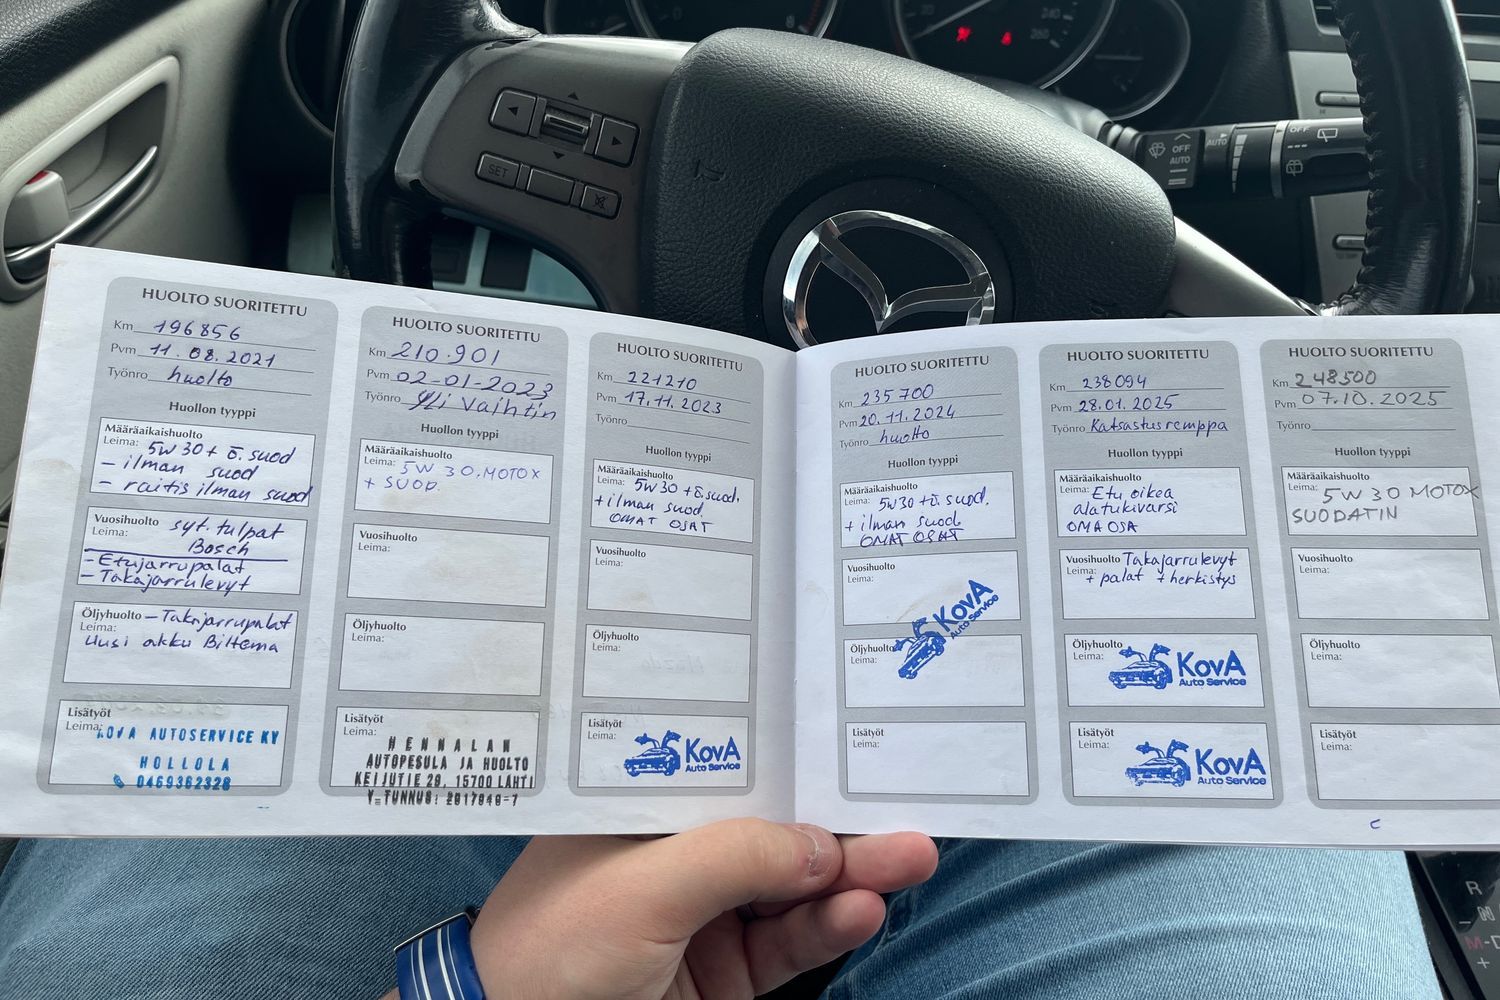 SET
OFF
AUTO
AUTO
OFF
HUOLTO SUORITETTU
Km 196856
Pvm 11.08.2021
Työnro huolto
Huollon tyyppi
Määräaikaishuolto
Leima: 5W30 + ö.suod
- ilman suod
- raitis ilman suod
Vuosihuolto syt.tulpat
Leima: Bosch
- Etujarrupalat
- Takajarrulevyt
Öljyhuolto - Takajarrupalat
Leima:
Uusi akku Biltema
Lisätyöt
Leima:
KOVA AUTOSERVICE KY
HOLLOLA
0469362328
HUOLTO SUORITETTU
Km 210.901
Pvm 02-01-2023
Työnro Öli vaihtin
Huollon tyyppi
Määräaikaishuolto
Leima: 5W 30.MOTOX
+ SUOD.
Vuosihuolto
Leima:
Öljyhuolto
Leima:
Lisätyöt
Leima:
HENNALAN
AUTOPESULA JA HUOLTO
KEIJUTIE 29, 15700 LAHTI
Y-TUNNUS: 2017940-7
HUOLTO SUORITETTU
Km 221210
Pvm 17.11.2023
Työnro
Huollon tyyppi
Määräaikaishuolto
Leima: 5W30 + ö.suod.
+ ilman suod.
OMAT OSAT
Vuosihuolto
Leima:
Öljyhuolto
Leima:
Lisätyöt
Leima:
KovA
Auto Service
HUOLTO SUORITETTU
Km 235700
Pvm 20.11.2024
Työnro huolto
Huollon tyyppi
Määräaikaishuolto
Leima: 5W30 + ö.suod.
+ ilman suod.
OMAT OSAT
Vuosihuolto
Leima:
KovA
Auto Service
Öljyhuolto
Leima:
Lisätyöt
Leima:
HUOLTO SUORITETTU
Km 238094
Pvm 28.01.2025
Työnro Katsastusremppa
Huollon tyyppi
Määräaikaishuolto
Leima: Etu oikea
alatukivarsi
OMA OSA
Vuosihuolto Takajarrulevyt
+ palat + herkistys
Öljyhuolto
Leima:
KovA
Auto Service
Lisätyöt
Leima:
KovA
Auto Service
HUOLTO SUORITETTU
Km 248500
Pvm 07.10.2025
Työnro
Huollon tyyppi
Määräaikaishuolto
Leima: 5W30 MOTOX
SUODATIN
Vuosihuolto
Leima:
Öljyhuolto
Leima:
Lisätyöt
Leima:
R
N
M-D
+